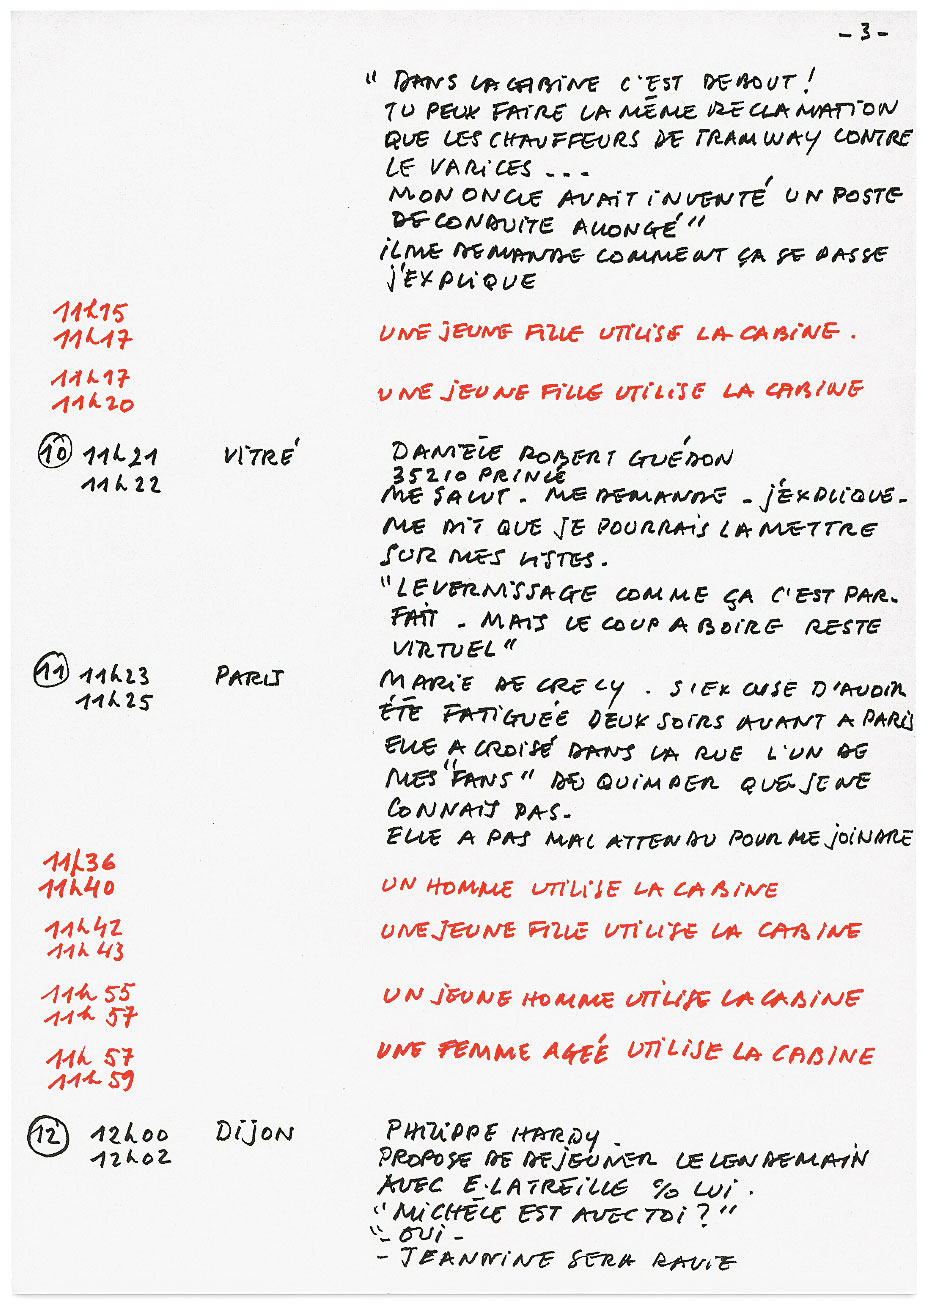 - 3 -
" DANS LA CABINE C'EST DEBOUT !
TU PEUX FAIRE LA MÊME RECLAMATION
QUE LES CHAUFFEURS DE TRAMWAY CONTRE
LE VARICES ...
MON ONCLE AVAIT INVENTÉ UN POSTE
DE CONDUITE ALLONGÉ "
IL ME DEMANDE COMMENT ÇA SE PASSE
J'EXPLIQUE
11h15
11h17 UNE JEUNE FILLE UTILISE LA CABINE .
11h17
11h20 UNE JEUNE FILLE UTILISE LA CABINE
10 11h21 VITRÉ DANIÈLE ROBERT GUÉDON
11h22 35210 PRINCÉ
ME SALUT - ME DEMANDE - J'EXPLIQUE -
ME DIT QUE JE POURRAIS LA METTRE
SUR MES LISTES .
" LE VERNISSAGE COMME ÇA C'EST PAR-
FAIT - MAIS LE COUP A BOIRE RESTE
VIRTUEL "
11 11h23 PARIS MARIE DE CRECY . S'EXCUSE D'AVOIR
11h25 ÉTÉ FATIGUÉE DEUX SOIRS AVANT A PARIS
ELLE A CROISÉ DANS LA RUE L'UN DE
MES "FANS" DE QUIMPER QUE JE NE
CONNAIS PAS .
ELLE A PAS MAL ATTENDU POUR ME JOINDRE
11h36
11h40 UN HOMME UTILISE LA CABINE
11h42 UNE JEUNE FILLE UTILISE LA CABINE
11h43
11h55 UN JEUNE HOMME UTILISE LA CABINE
11h57
11h57 UNE FEMME AGEÉ UTILISE LA CABINE
11h59
12 12h00 DIJON PHILIPPE HARDY .
12h02 PROPOSE DE DEJEUNER LE LENDEMAIN
AVEC E. LATREILLE % LUI .
" MICHÈLE EST AVEC TOI ? "
"- OUI -
- JEANNINE SERA RAVIE